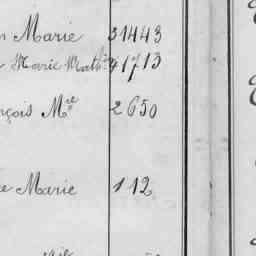 Marie 31443
Marie Math 41713
nçois Mie 2650
e Marie 112